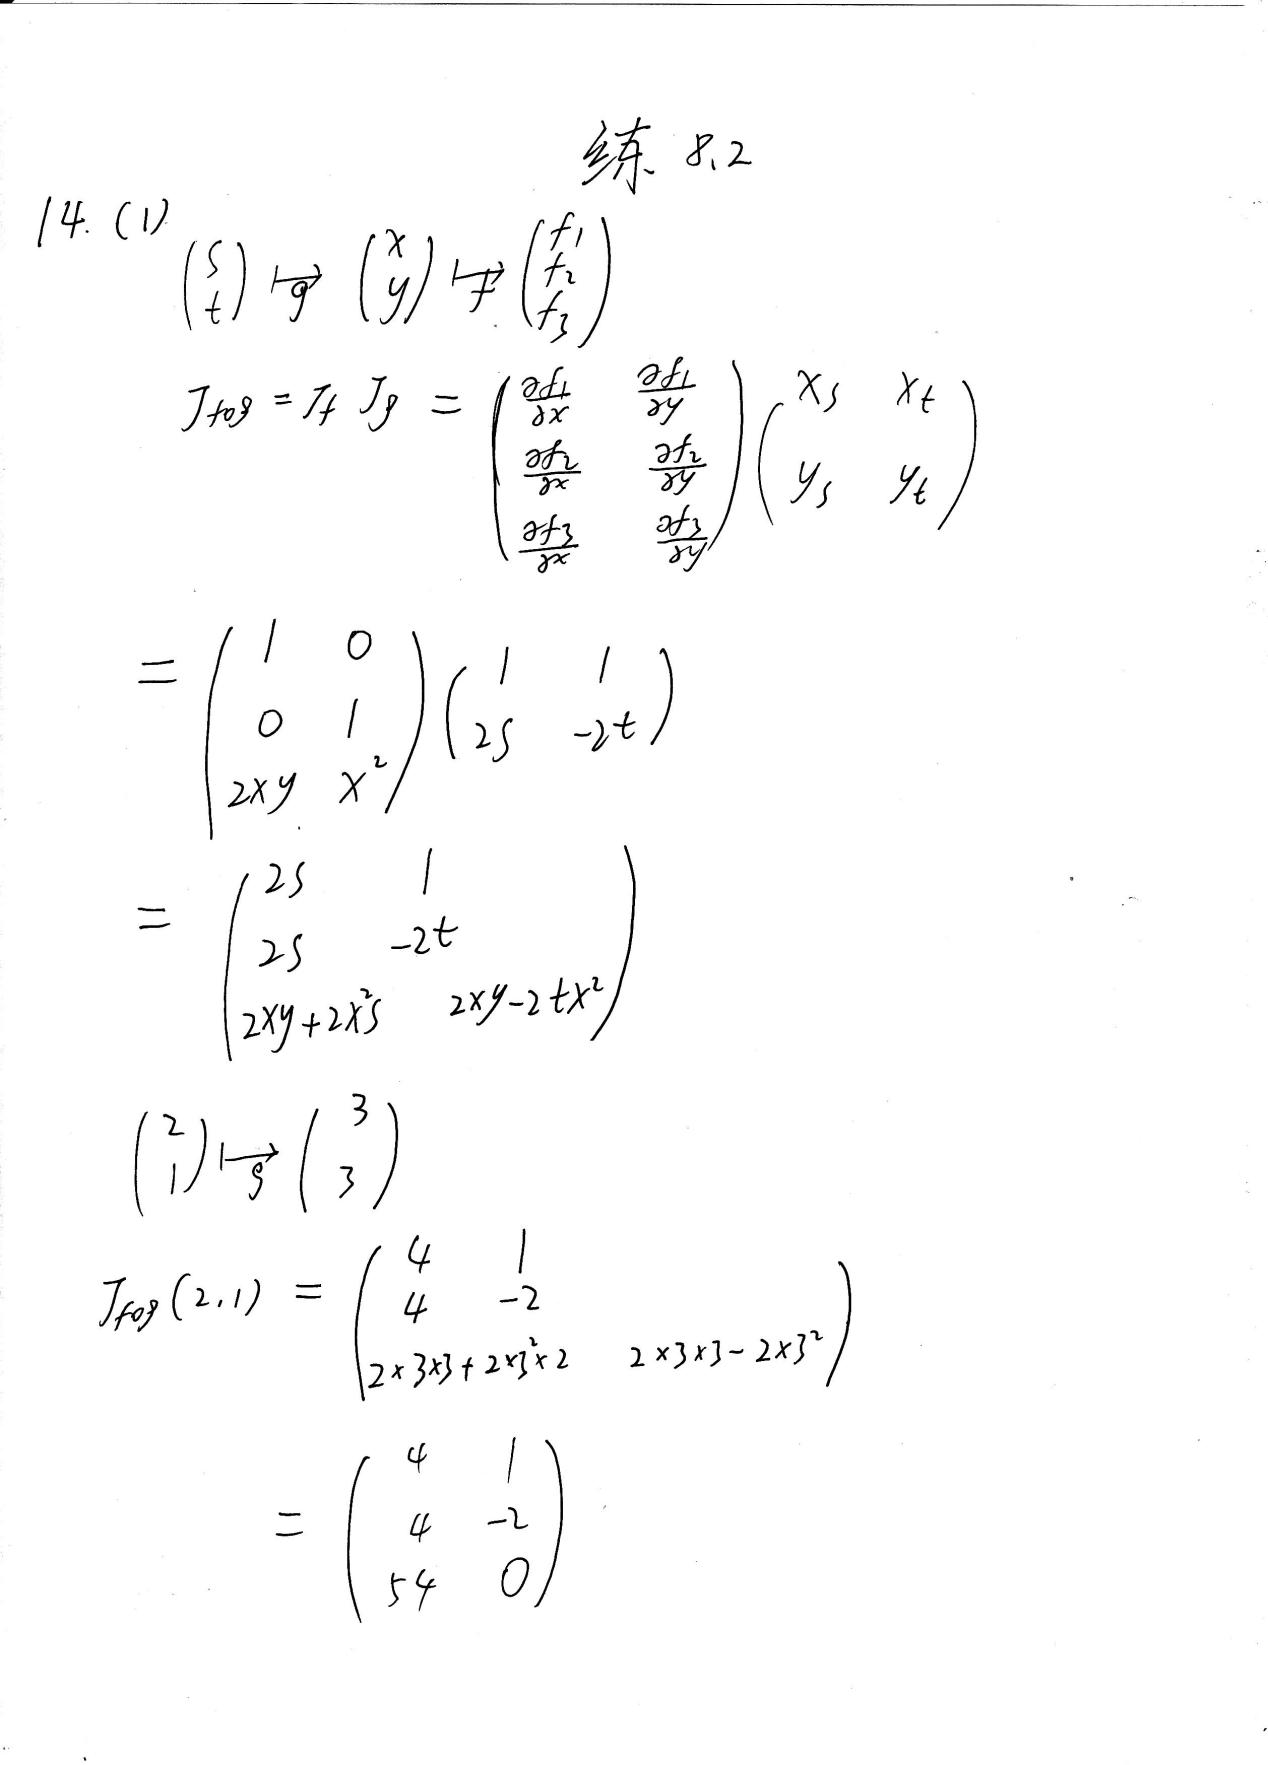 练 8.2
14. (1)
(s t) ↦g (x y) ↦f (f1 f2 f3)
Jf∘g = Jf Jg = (∂f1/∂x ∂f1/∂y ; ∂f2/∂x ∂f2/∂y ; ∂f3/∂x ∂f3/∂y) (xs xt ; ys yt)
= (1 0 ; 0 1 ; 2xy x²) (1 1 ; 2s -2t)
= (2s 1 ; 2s -2t ; 2xy+2x²s 2xy-2tx²)
(2 1) ↦g (3 3)
Jf∘g(2,1) = (4 1 ; 4 -2 ; 2×3×3+2×3²×2 2×3×3-2×3²)
= (4 1 ; 4 -2 ; 54 0)